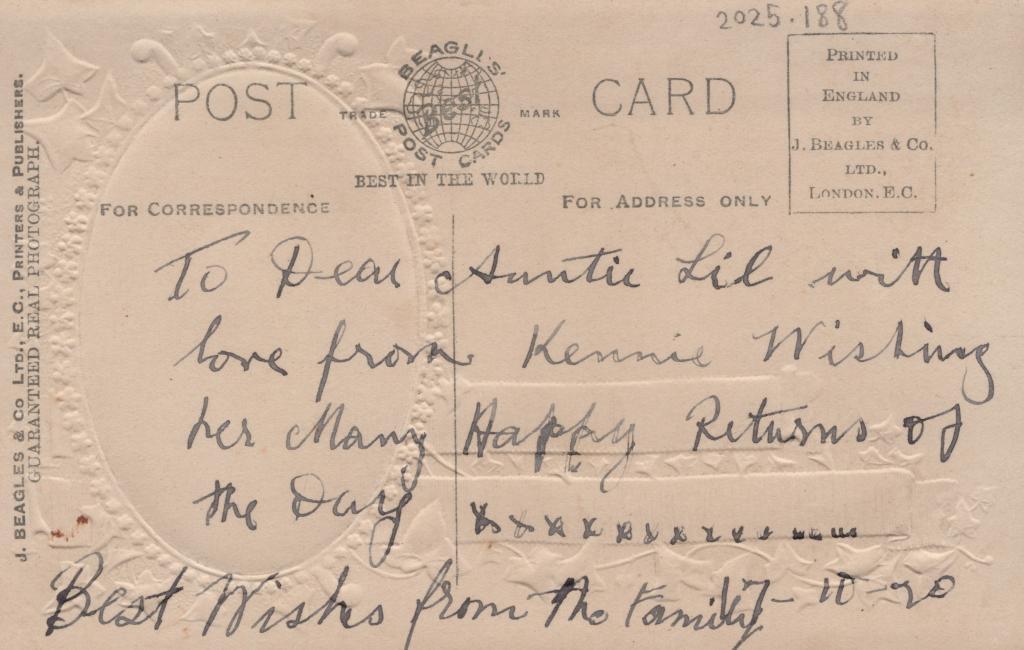 2025.188
POST CARD
TRADE MARK
BEAGLES' POST CARDS
BEST
BEST IN THE WORLD
PRINTED
IN
ENGLAND
BY
J. BEAGLES & CO.
LTD.,
LONDON. E.C.
FOR CORRESPONDENCE
FOR ADDRESS ONLY
J. BEAGLES & CO LTD., E.C., PRINTERS & PUBLISHERS.
GUARANTEED REAL PHOTOGRAPH.
To Dear Auntie Lil with
love from Kennie Wishing
her Many Happy Returns of
the Day
x x x x x x x x x x
Best Wishes from the Family 17-10-20